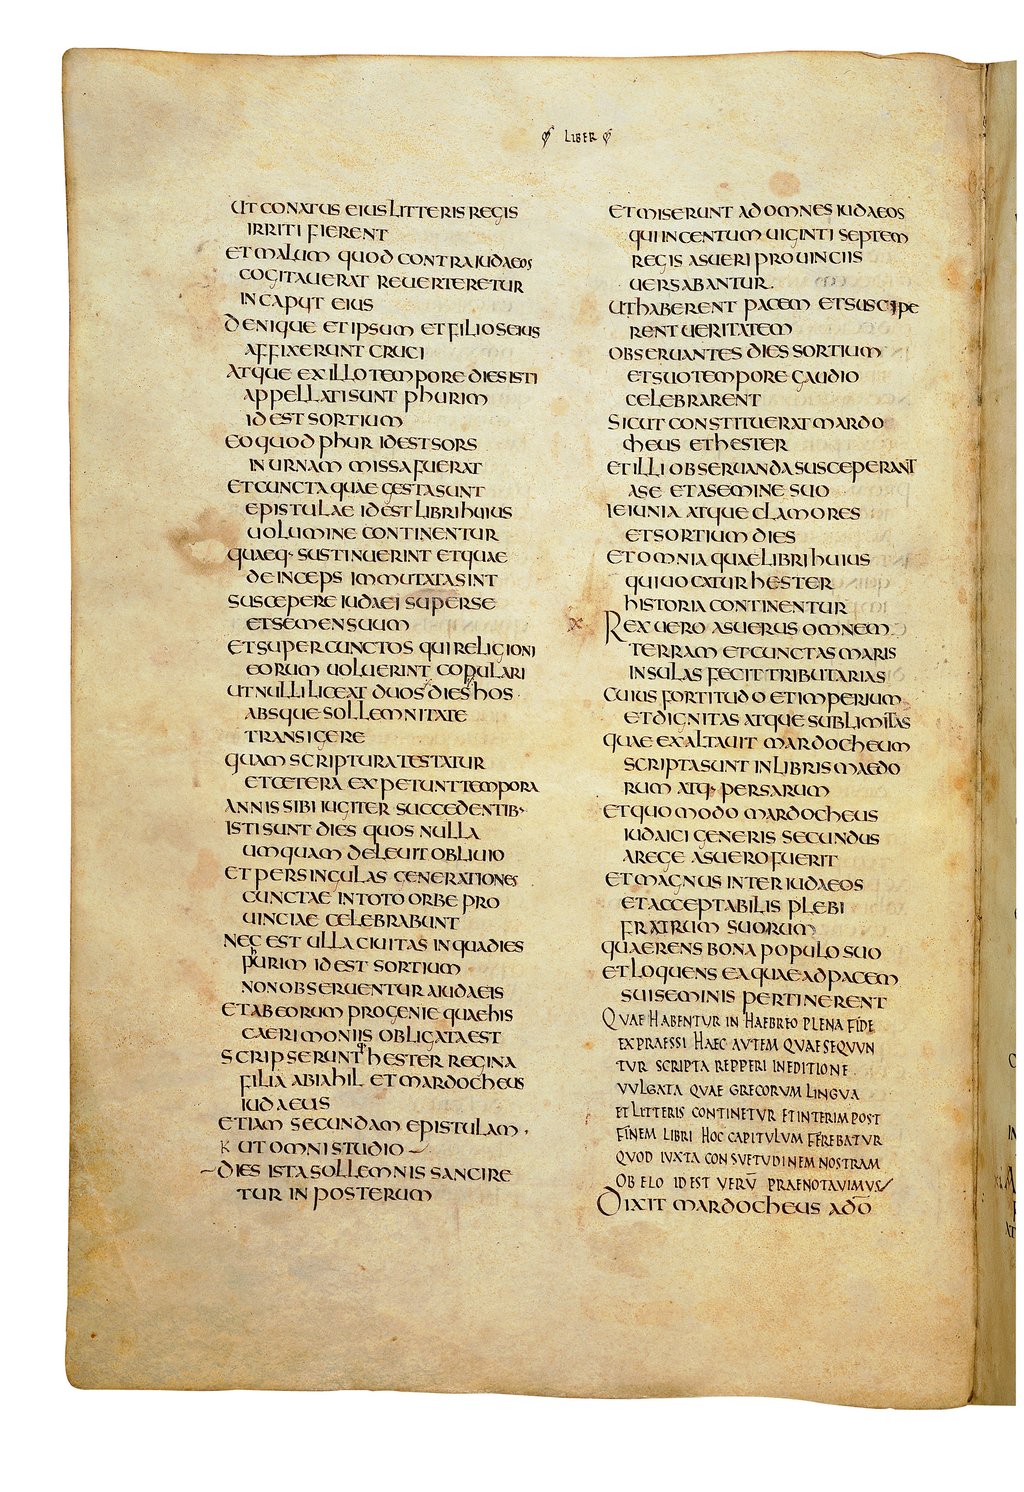 LIBER
UT CONATUS EIUS LITTERIS REGIS
IRRITI FIERENT
ET MALUM QUOD CONTRA IUDAEOS
COGITAUERAT REUERTERETUR
IN CAPUT EIUS
DENIQUE ET IPSUM ET FILIOS EIUS
AFFIXERUNT CRUCI
ATQUE EX ILLO TEMPORE DIES ISTI
APPELLATI SUNT PHURIM
ID EST SORTIUM
EO QUOD PHUR ID EST SORS
IN URNAM MISSA FUERAT
ET CUNCTA QUAE GESTA SUNT
EPISTULAE ID EST LIBRI HUIUS
UOLUMINE CONTINENTUR
QUAEQ· SUSTINUERINT ET QUAE
DEINCEPS IMMUTATA SINT
SUSCEPERE IUDAEI SUPER SE
ET SEMEN SUUM
ET SUPER CUNCTOS QUI RELIGIONI
EORUM UOLUERINT COPULARI
UT NULLI LICEAT DUOS DIES HOS
ABSQUE SOLLEMNITATE
TRANSIGERE
QUAM SCRIPTURA TESTATUR
ET CETERA EXPETUNT TEMPORA
ANNIS SIBI IUGITER SUCCEDENTIB·
ISTI SUNT DIES QUOS NULLA
UMQUAM DELEUIT OBLIUIO
ET PER SINGULAS GENERATIONES
CUNCTAE IN TOTO ORBE PRO
UINCIAE CELEBRABUNT
NEC EST ULLA CIUITAS IN QUA DIES
PhURIM ID EST SORTIUM
NON OBSERUENTUR A IUDAEIS
ET AB EORUM PROGENIE QUAE HIS
CAERIMONIIS OBLIGATA EST
SCRIPSERUNTq HESTER REGINA
FILIA ABIAHIL ET MARDOCHEUS
IUDAEUS
ETIAM SECUNDAM EPISTULAM
UT OMNI STUDIO
DIES ISTA SOLLEMNIS SANCIRE
TUR IN POSTERUM
ET MISERUNT AD OMNES IUDAEOS
QUI IN CENTUM UIGINTI SEPTEM
REGIS ASUERI PROUINCIIS
UERSABANTUR
UT HABERENT PACEM ET SUSCIPE
RENT UERITATEM
OBSERUANTES DIES SORTIUM
ET SUO TEMPORE GAUDIO
CELEBRARENT
SICUT CONSTITUERAT MARDO
CHEUS ET HESTER
ET ILLI OBSERUANDA SUSCEPERANT
A SE ET A SEMINE SUO
IEIUNIA ATQUE CLAMORES
ET SORTIUM DIES
ET OMNIA QUAE LIBRI HUIUS
QUI UOCATUR HESTER
HISTORIA CONTINENTUR
REX UERO ASUERUS OMNEM
TERRAM ET CUNCTAS MARIS
INSULAS FECIT TRIBUTARIAS
CUIUS FORTITUDO ET IMPERIUM
ET DIGNITAS ATQUE SUBLIMITAS
QUAE EXALTAUIT MARDOCHEUM
SCRIPTA SUNT IN LIBRIS MAEDO
RUM ATQ· PERSARUM
ET QUOMODO MARDOCHEUS
IUDAICI GENERIS SECUNDUS
A REGE ASUERO FUERIT
ET MAGNUS INTER IUDAEOS
ET ACCEPTABILIS PLEBI
FRATRUM SUORUM
QUAERENS BONA POPULO SUO
ET LOQUENS EA QUAE AD PACEM
SUI SEMINIS PERTINERENT
QVAE HABENTUR IN HAEBREO PLENA FIDE
EXPRAESSI HAEC AVTEM QVAE SEQVVN
TVR SCRIPTA REPPERI IN EDITIONE
VVLGATA QVAE GRECORVM LINGVA
ET LITTERIS CONTINETVR ET INTERIM POST
FINEM LIBRI HOC CAPITVLVM FEREBATVR
QVOD IVXTA CONSVETVDINEM NOSTRAM
OBELO ID EST VERV̄ PRAENOTAVIMVS
DIXIT MARDOCHEUS A DŌ